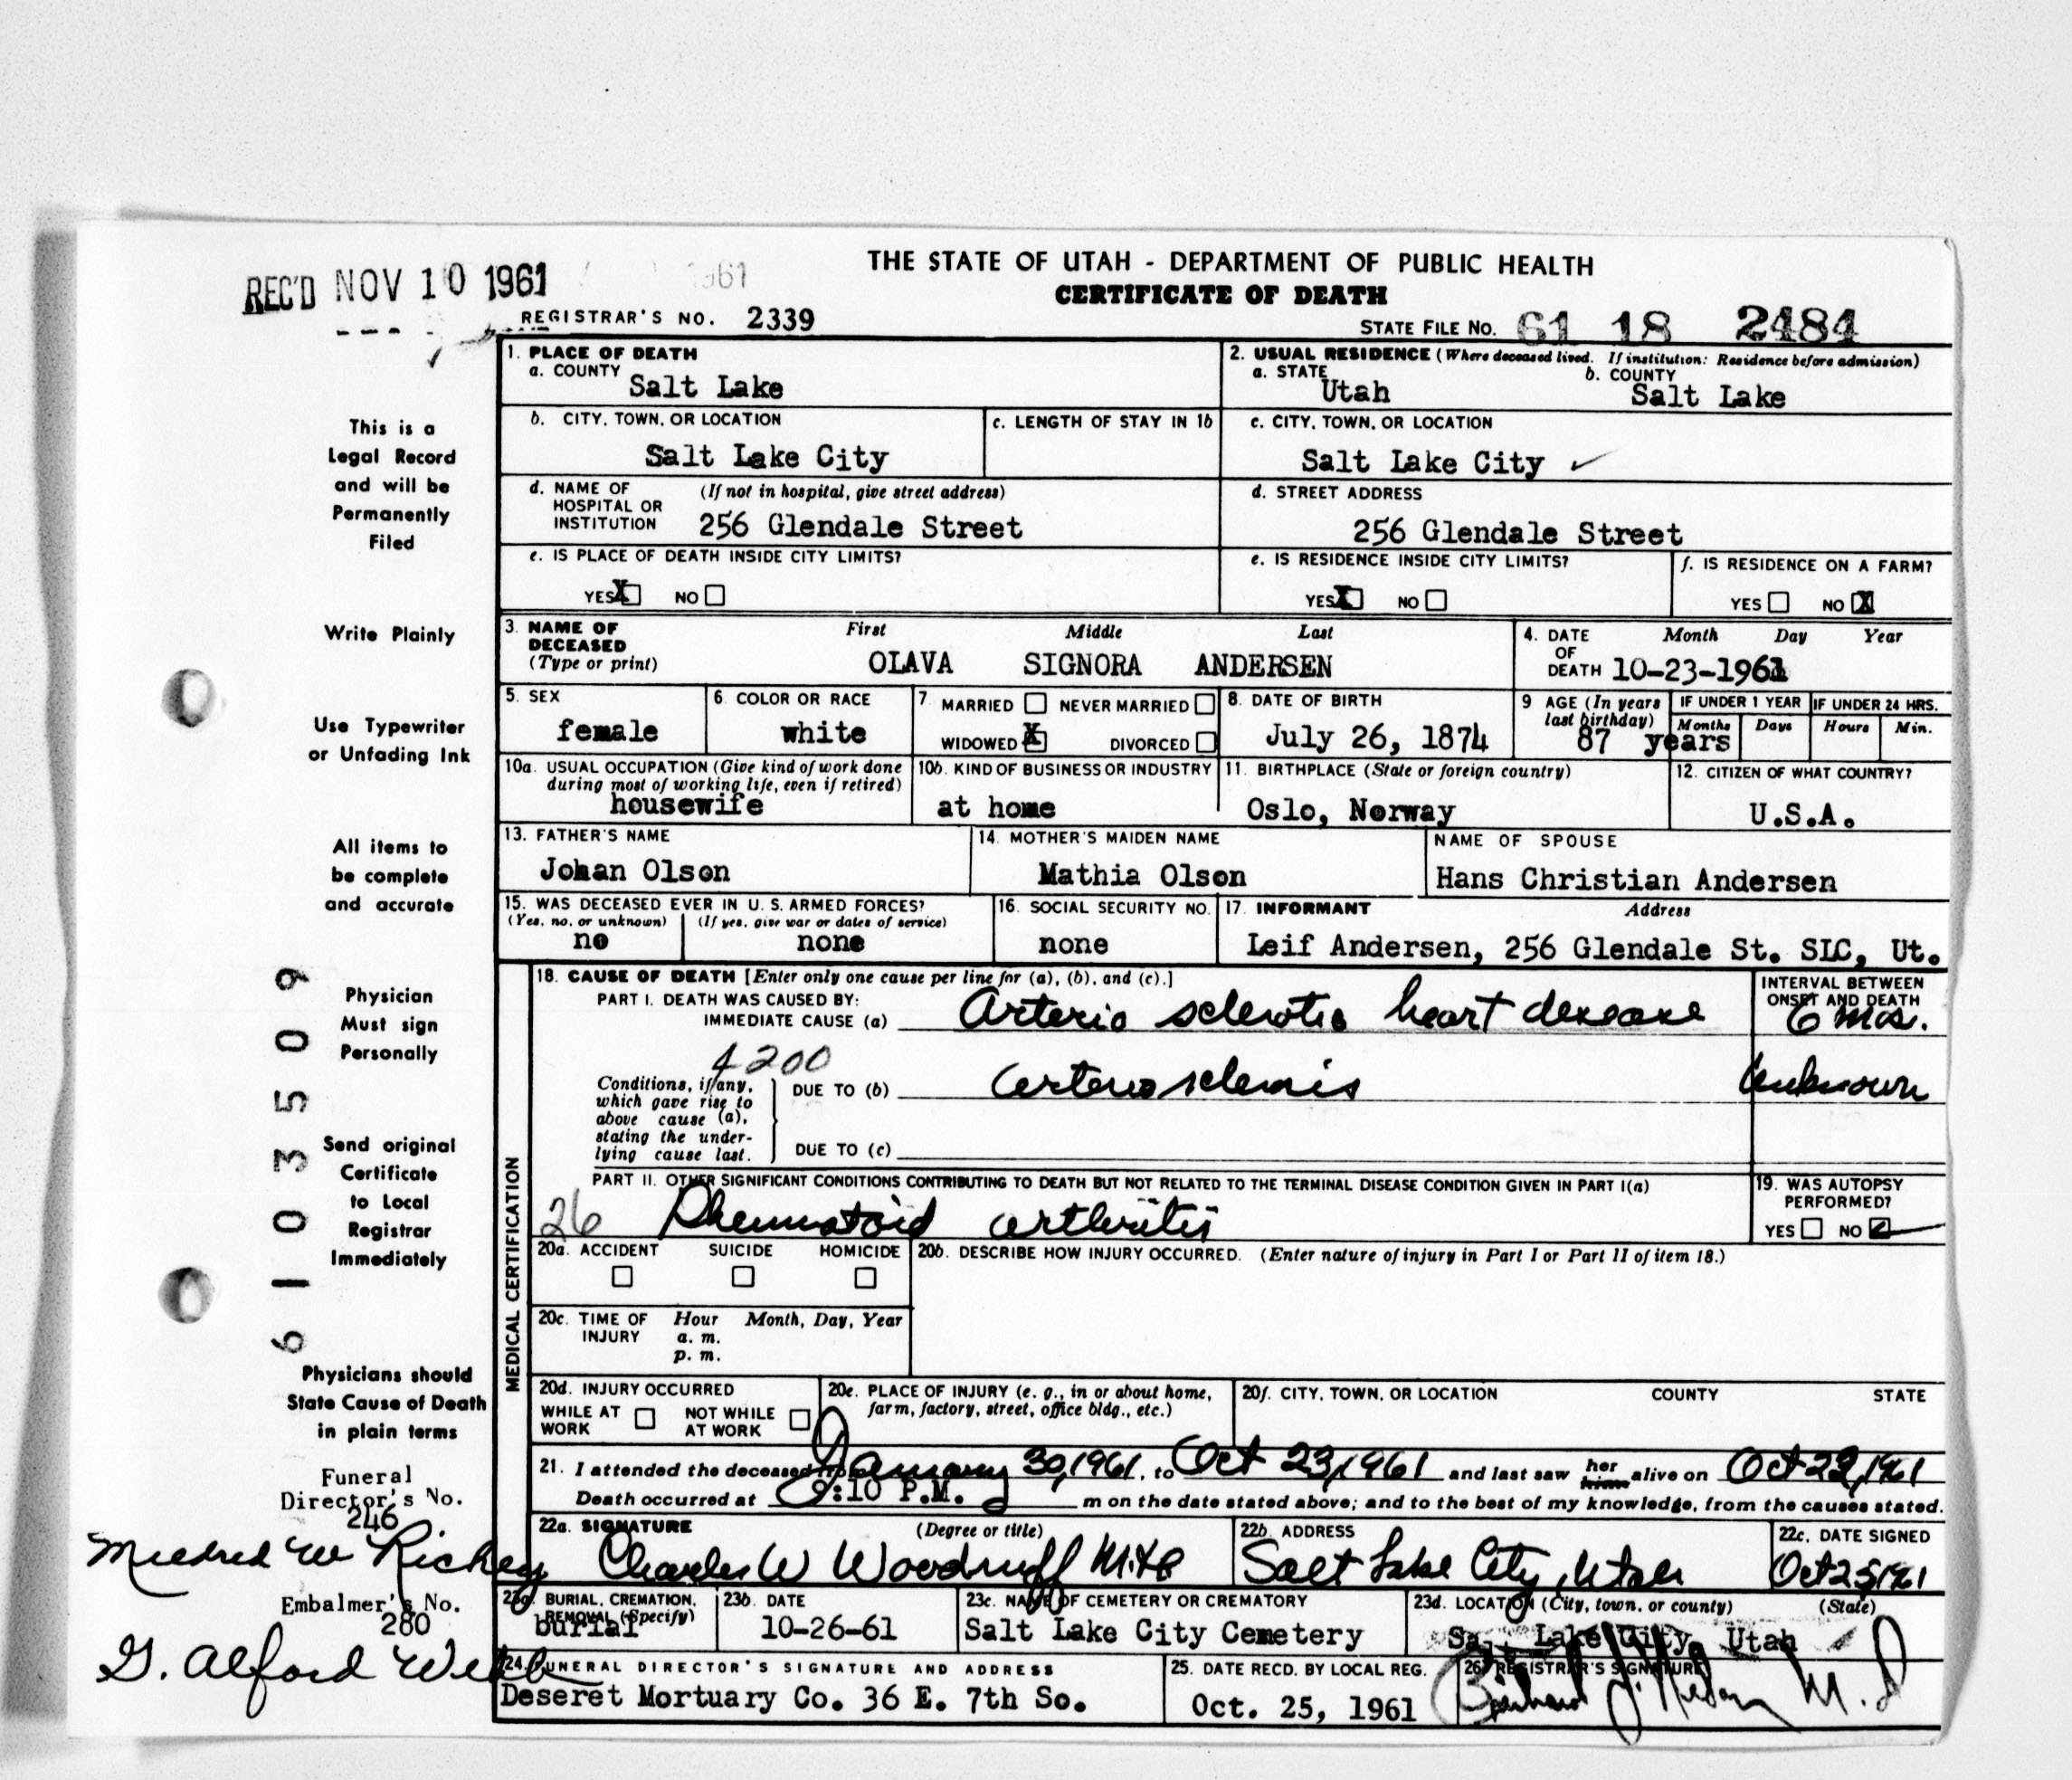 REC'D NOV 10 1961
THE STATE OF UTAH - DEPARTMENT OF PUBLIC HEALTH
CERTIFICATE OF DEATH
REGISTRAR'S NO. 2339
STATE FILE NO. 61 18 2484
This is a
Legal Record
and will be
Permanently
Filed
Write Plainly
Use Typewriter
or Unfading Ink
All items to
be complete
and accurate
Physician
Must sign
Personally
Send original
Certificate
to Local
Registrar
Immediately
Physicians should
State Cause of Death
in plain terms
Funeral
Director's No.
246
Mildred W Richey
Embalmer's No.
280
G. Alford
61035509
1. PLACE OF DEATH
a. COUNTY
Salt Lake
2. USUAL RESIDENCE (Where deceased lived. If institution: Residence before admission)
a. STATE
Utah
b. COUNTY
Salt Lake
b. CITY, TOWN, OR LOCATION
Salt Lake City
c. LENGTH OF STAY IN 1b
c. CITY, TOWN, OR LOCATION
Salt Lake City
d. NAME OF HOSPITAL OR INSTITUTION (If not in hospital, give street address)
256 Glendale Street
d. STREET ADDRESS
256 Glendale Street
e. IS PLACE OF DEATH INSIDE CITY LIMITS?
YES X NO
e. IS RESIDENCE INSIDE CITY LIMITS?
YES X NO
f. IS RESIDENCE ON A FARM?
YES NO X
3. NAME OF DECEASED (Type or print)
First Middle Last
OLAVA SIGNORA ANDERSEN
4. DATE OF DEATH Month Day Year
10-23-1961
5. SEX
female
6 COLOR OR RACE
white
7 MARRIED NEVER MARRIED
WIDOWED X DIVORCED
8. DATE OF BIRTH
July 26, 1874
9 AGE (In years last birthday)
87 years
IF UNDER 1 YEAR IF UNDER 24 HRS.
Months Days Hours Min.
10a. USUAL OCCUPATION (Give kind of work done during most of working life, even if retired)
housewife
10b. KIND OF BUSINESS OR INDUSTRY
at home
11. BIRTHPLACE (State or foreign country)
Oslo, Norway
12. CITIZEN OF WHAT COUNTRY?
U.S.A.
13. FATHER'S NAME
Johan Olson
14. MOTHER'S MAIDEN NAME
Mathia Olson
NAME OF SPOUSE
Hans Christian Andersen
15. WAS DECEASED EVER IN U. S. ARMED FORCES?
(Yes, no, or unknown) (If yes, give war or dates of service)
no none
16. SOCIAL SECURITY NO.
none
17. INFORMANT Address
Leif Andersen, 256 Glendale St. SLC, Ut.
MEDICAL CERTIFICATION
18. CAUSE OF DEATH [Enter only one cause per line for (a), (b), and (c).]
INTERVAL BETWEEN ONSET AND DEATH
PART I. DEATH WAS CAUSED BY:
IMMEDIATE CAUSE (a) Arterio sclerotic heart desease 6 mos.
4200
Conditions, if any, which gave rise to above cause (a), stating the underlying cause last.
DUE TO (b) arteriosclerosis Unknown
DUE TO (c)
PART II. OTHER SIGNIFICANT CONDITIONS CONTRIBUTING TO DEATH BUT NOT RELATED TO THE TERMINAL DISEASE CONDITION GIVEN IN PART I(a)
26 Rheumatoid arthritis
19. WAS AUTOPSY PERFORMED?
YES NO
20a. ACCIDENT SUICIDE HOMICIDE
20b. DESCRIBE HOW INJURY OCCURRED. (Enter nature of injury in Part I or Part II of item 18.)
20c. TIME OF INJURY Hour Month, Day, Year
a. m.
p. m.
20d. INJURY OCCURRED
WHILE AT WORK NOT WHILE AT WORK
20e. PLACE OF INJURY (e. g., in or about home, farm, factory, street, office bldg., etc.)
20f. CITY, TOWN, OR LOCATION COUNTY STATE
21. I attended the deceased from January 30, 1961, to Oct 23, 1961 and last saw her him alive on Oct 22, 1961
Death occurred at 9:10 P.M. m on the date stated above; and to the best of my knowledge, from the causes stated.
22a. SIGNATURE (Degree or title)
Charles W Woodruff
22b. ADDRESS
Salt Lake City, Utah
22c. DATE SIGNED
Oct 25 1961
23a. BURIAL, CREMATION, REMOVAL (Specify)
burial
23b. DATE
10-26-61
23c. NAME OF CEMETERY OR CREMATORY
Salt Lake City Cemetery
23d. LOCATION (City, town, or county) (State)
Salt Lake City, Utah
24. FUNERAL DIRECTOR'S SIGNATURE AND ADDRESS
Deseret Mortuary Co. 36 E. 7th So.
25. DATE RECD. BY LOCAL REG.
Oct. 25, 1961
26. REGISTRAR'S SIGNATURE